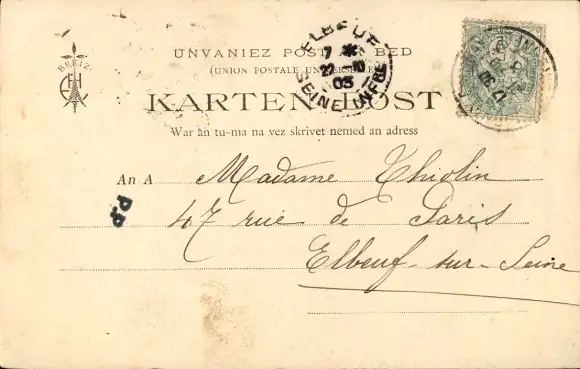 BREIZ
UNVANIEZ POST AR BED
(UNION POSTALE UNIVERSELLE)
KARTEN-POST
War an tu-ma na vez skrivet nemed an adress
An A Madame Thiolin
47 rue de Paris
Elbeuf-sur-Seine
P.P
ELBEUF
7 *
22 10
05
SEINE INFRE